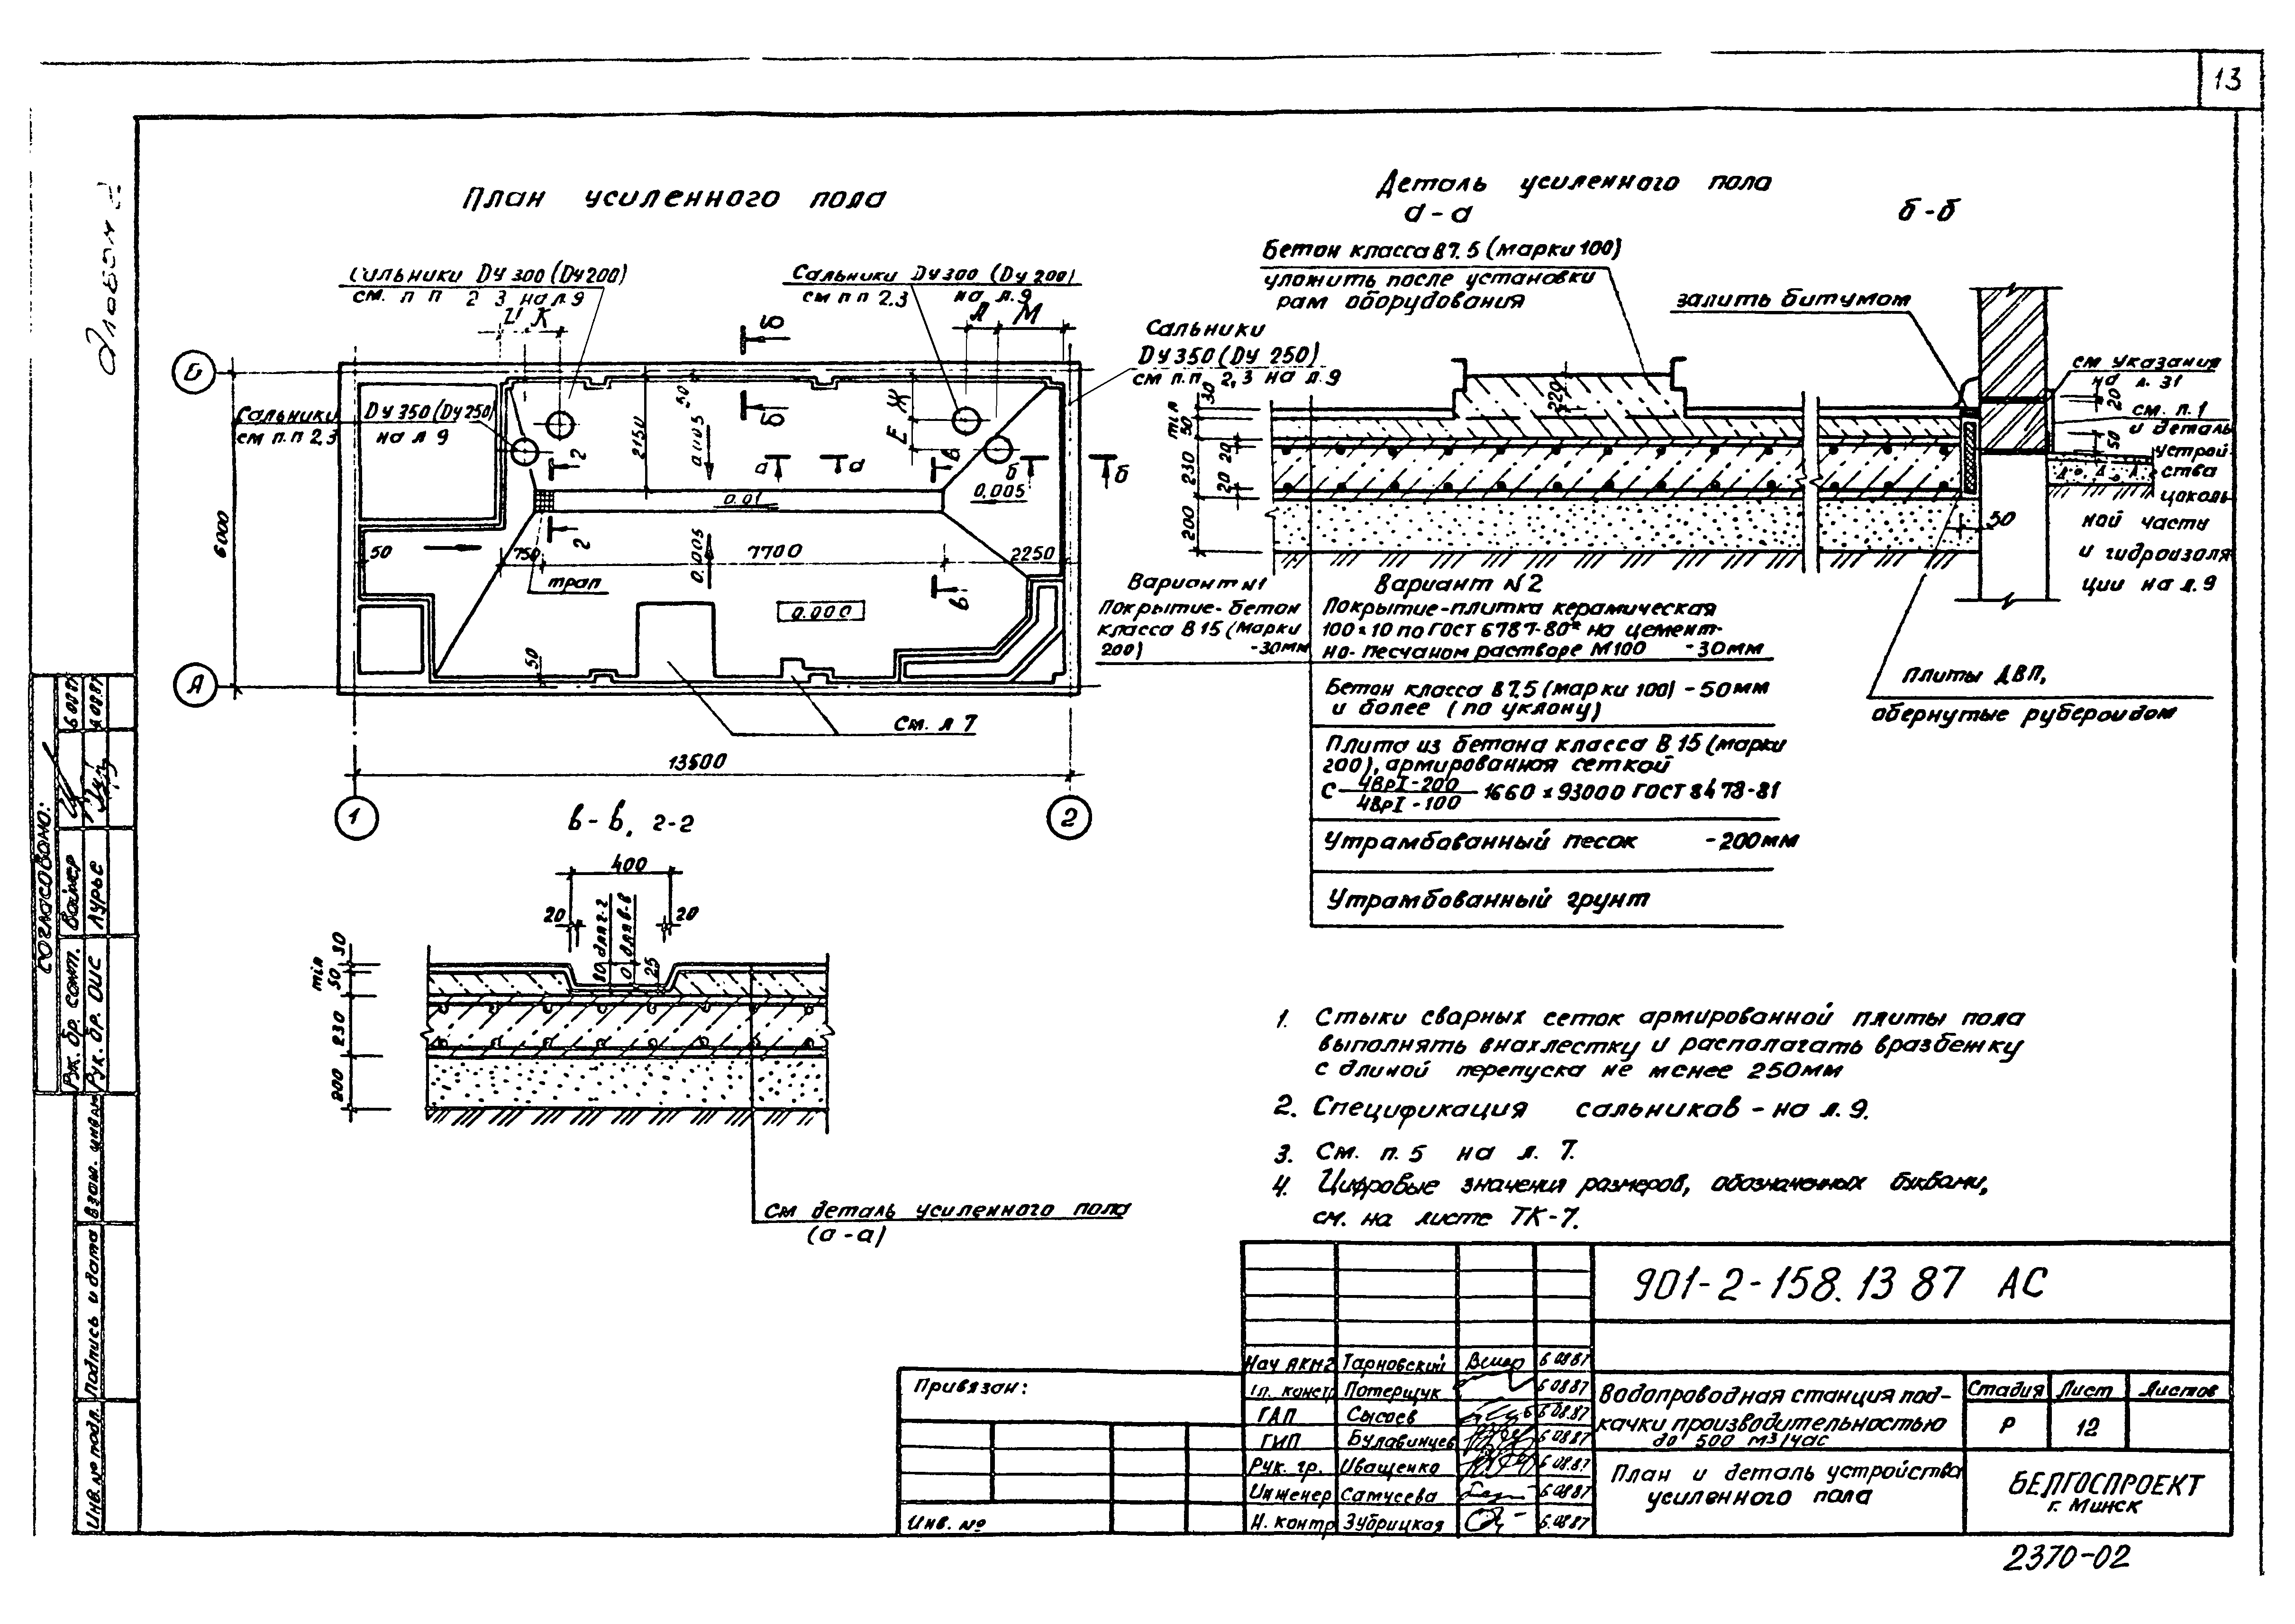 13
Альбом 2
План усиленного пола
Сальники Dу 300 (Dу 200)
см. п п 2 3 на л. 9
И К
Сальники Dу 300 (Dу 200)
см п п 2.3 на л. 9
Л М
Сальники
Dу 350 (Dу 250)
см п.п 2,3 на л. 9
Сальники Dу 350 (Dу 250)
см п.п 2,3 на л 9
Б
А
6000
2150
50
Ж
Е
0.01
0,005
0.005
50
750
7700
2250
трап
0.000
50
См. л 7
13500
1
2
б
б
а а
в
в
2
2
б б
Деталь усиленного пола
а-а
б-б
Бетон класса В7.5 (марки 100)
уложить после установки
рам оборудования
залить битумом
см указания
на л. 31
20
см. п. 1
и деталь
устрой-
ства
цоколь-
ной части
и гидроизоля
ции на л. 9
50
50
220
30
min
50
230
200
20
20
Вариант N1
Покрытие- бетон
класса В 15 (марки
200) -30мм
Вариант N 2
Покрытие-плитка керамическая
100×10 по ГОСТ 6787-80* на цемент-
но- песчаном растворе М100 -30мм
Бетон класса В 7,5 (марки 100) - 50мм
и более (по уклону)
Плита из бетона класса В 15 (марки
200), армированная сеткой
С 4ВрI-200
4ВрI-100 1660 × 93000 ГОСТ 8478-81
Утрамбованный песок -200мм
Утрамбованный грунт
Плиты ДВП,
обернутые рубероидом
в-в, г-г
400
20
20
80 для г-г
0 для в-в
25
30
min
50
230
200
См деталь усиленного пола
(а-а)
1. Стыки сварных сеток армированной плиты пола
выполнять внахлестку и располагать вразбежку
с длиной перепуска не менее 250мм
2. Спецификация сальников - на л. 9.
3. См. п. 5 на л. 7.
4. Цифровые значения размеров, обозначенных буквами,
см. на листе ТК-7.
901-2-158.13 87 АС
Нач АКМ2 Тарновский 6 08 87
гл. констр Потерщук 6 08 87
ГАП Сысоев 6 08.87
ГИП Булавинцев 6 08 87
Рук. гр. Иващенко 6.08.87
Инженер Самусева 6 08 87
Н. контр Зубрицкая 6.08 87
Привязан:
Инв. №
Водопроводная станция под-
качки производительностью
до 500 м³/час
Стадия Лист Листов
Р 12
План и деталь устройства
усиленного пола
БЕЛГОСПРОЕКТ
г. Минск
2370-02
СОГЛАСОВАНО:
Рук. бр. сант. Ваймер
Рук. бр. ОИС Лурье
Взам. инв. №
Подпись и дата
Инв. № подл.